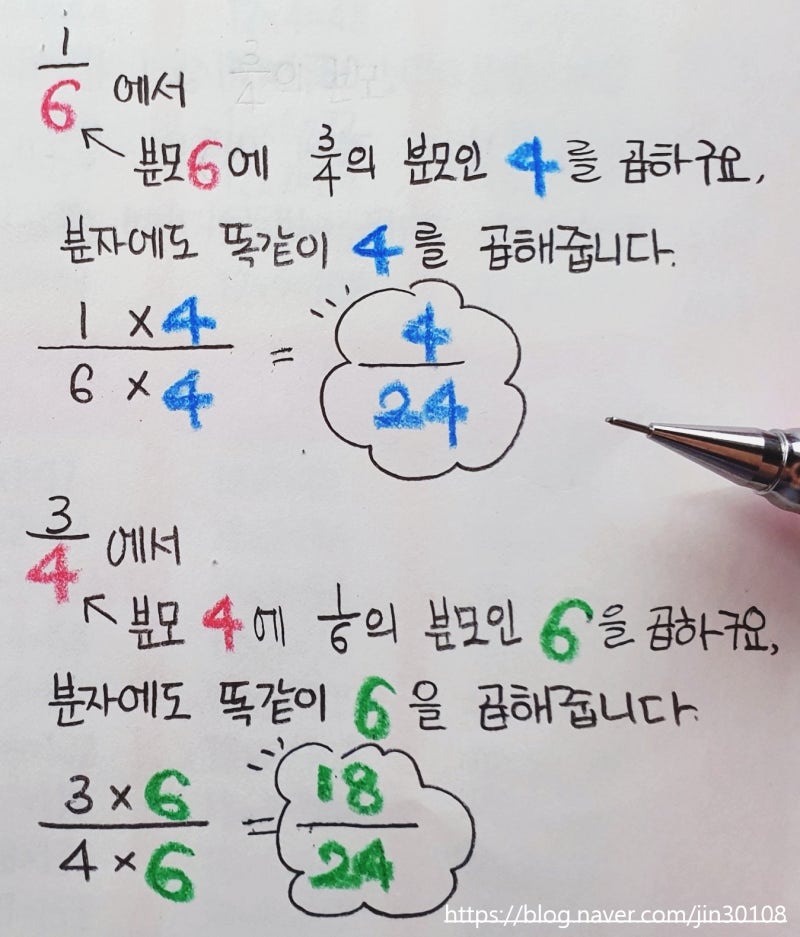 1/6 에서
분모6에 3/4의 분모인 4를 곱하구요,
분자에도 똑같이 4를 곱해줍니다.
1 × 4 / 6 × 4 = 4/24
3/4 에서
분모 4에 1/6의 분모인 6을 곱하구요,
분자에도 똑같이 6을 곱해줍니다.
3 × 6 / 4 × 6 = 18/24
https://blog.naver.com/jin30108